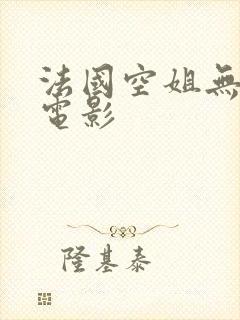 法國空姐無
電影
隆基泰